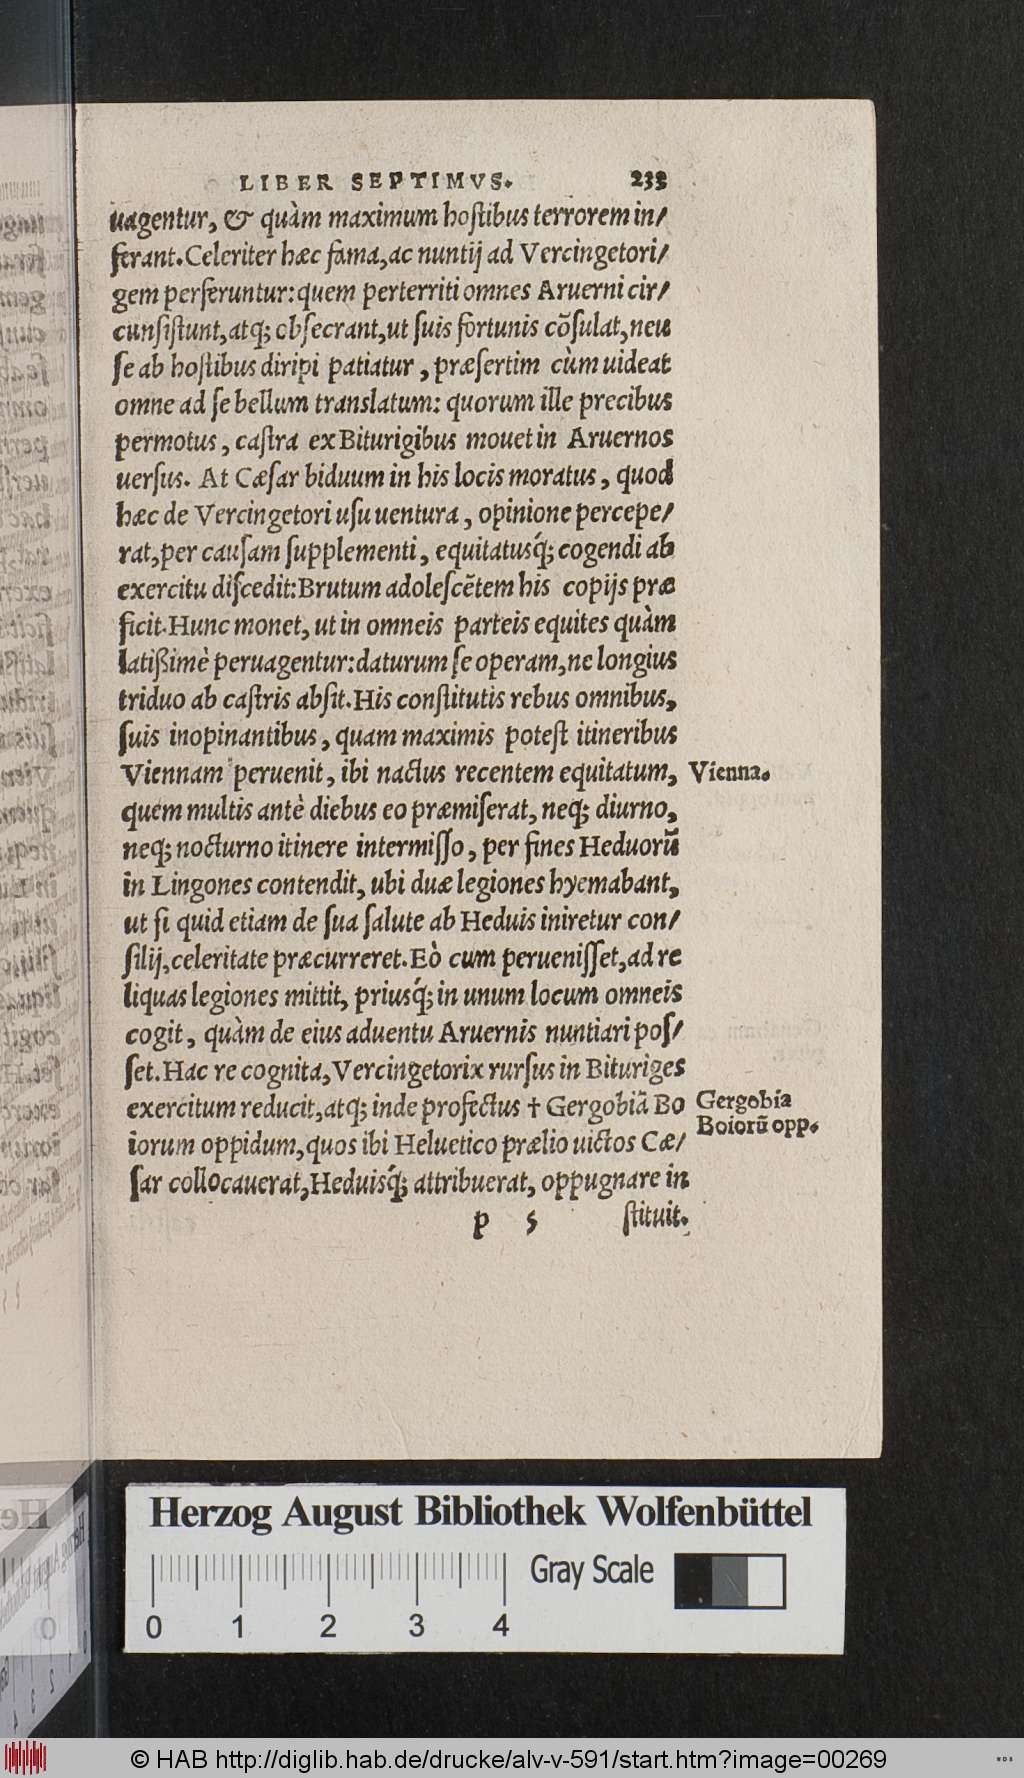 LIBER SEPTIMVS. 233
uagentur, & quàm maximum hostibus terrorem in/
ferant. Celeriter hæc fama, ac nuntij ad Vercingetori/
gem perferuntur: quem perterriti omnes Aruerni cir/
cunsistunt, atq; obsecrant, ut suis fortunis cõsulat, neu
se ab hostibus diripi patiatur, præsertim cùm uideat
omne ad se bellum translatum: quorum ille precibus
permotus, castra ex Biturigibus mouet in Aruernos
uersus. At Cæsar biduum in his locis moratus, quod
hæc de Vercingetori usu uentura, opinione percepe/
rat, per causam supplementi, equitatusq́; cogendi ab
exercitu discedit: Brutum adolescẽtem his copijs præ
ficit. Hunc monet, ut in omneis parteis equites quàm
latißimè peruagentur: daturum se operam, ne longius
triduo ab castris absit. His constitutis rebus omnibus,
suis inopinantibus, quam maximis potest itineribus
Viennam peruenit, ibi nactus recentem equitatum, Vienna.
quem multis antè diebus eo præmiserat, neq; diurno,
neq; nocturno itinere intermisso, per fines Heduorũ
in Lingones contendit, ubi duæ legiones hyemabant,
ut si quid etiam de sua salute ab Heduis iniretur con/
silij, celeritate præcurreret. Eò cum peruenisset, ad re
liquas legiones mittit, priusq́; in unum locum omneis
cogit, quàm de eius aduentu Aruernis nuntiari pos/
set. Hac re cognita, Vercingetorix rursus in Bituriges
exercitum reducit, atq; inde profectus † Gergobiã Bo Gergobia
iorum oppidum, quos ibi Heluetico prælio uictos Cæ/ Boiorũ opp.
sar collocauerat, Heduisq́; attribuerat, oppugnare in
p 5 stituit.
Herzog August Bibliothek Wolfenbüttel
Gray Scale
0 1 2 3 4
© HAB http://diglib.hab.de/drucke/alv-v-591/start.htm?image=00269